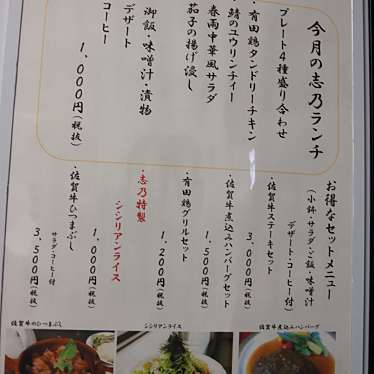 今月の志乃ランチ
プレート4種盛り合わせ
・有田鶏タンドリーチキン
・鯖のユウリンチィー
・春雨中華風サラダ
・茄子の揚げ浸し
御飯・味噌汁・漬物
デザート
コーヒー
1,000円(税抜)
お得なセットメニュー
(小鉢・サラダ・ご飯・味噌汁
デザート・コーヒー付)
・佐賀牛ステーキセット
3,000円(税抜)
・佐賀牛煮込みハンバーグセット
1,500円(税抜)
・有田鶏グリルセット
1,200円(税抜)
・志乃特製
シシリアンライス
1,000円(税抜)
・佐賀牛ひつまぶし
サラダ・コーヒー付
3,500円(税抜)
佐賀牛のひつまぶし
シシリアンライス
佐賀牛煮込みハンバーグ